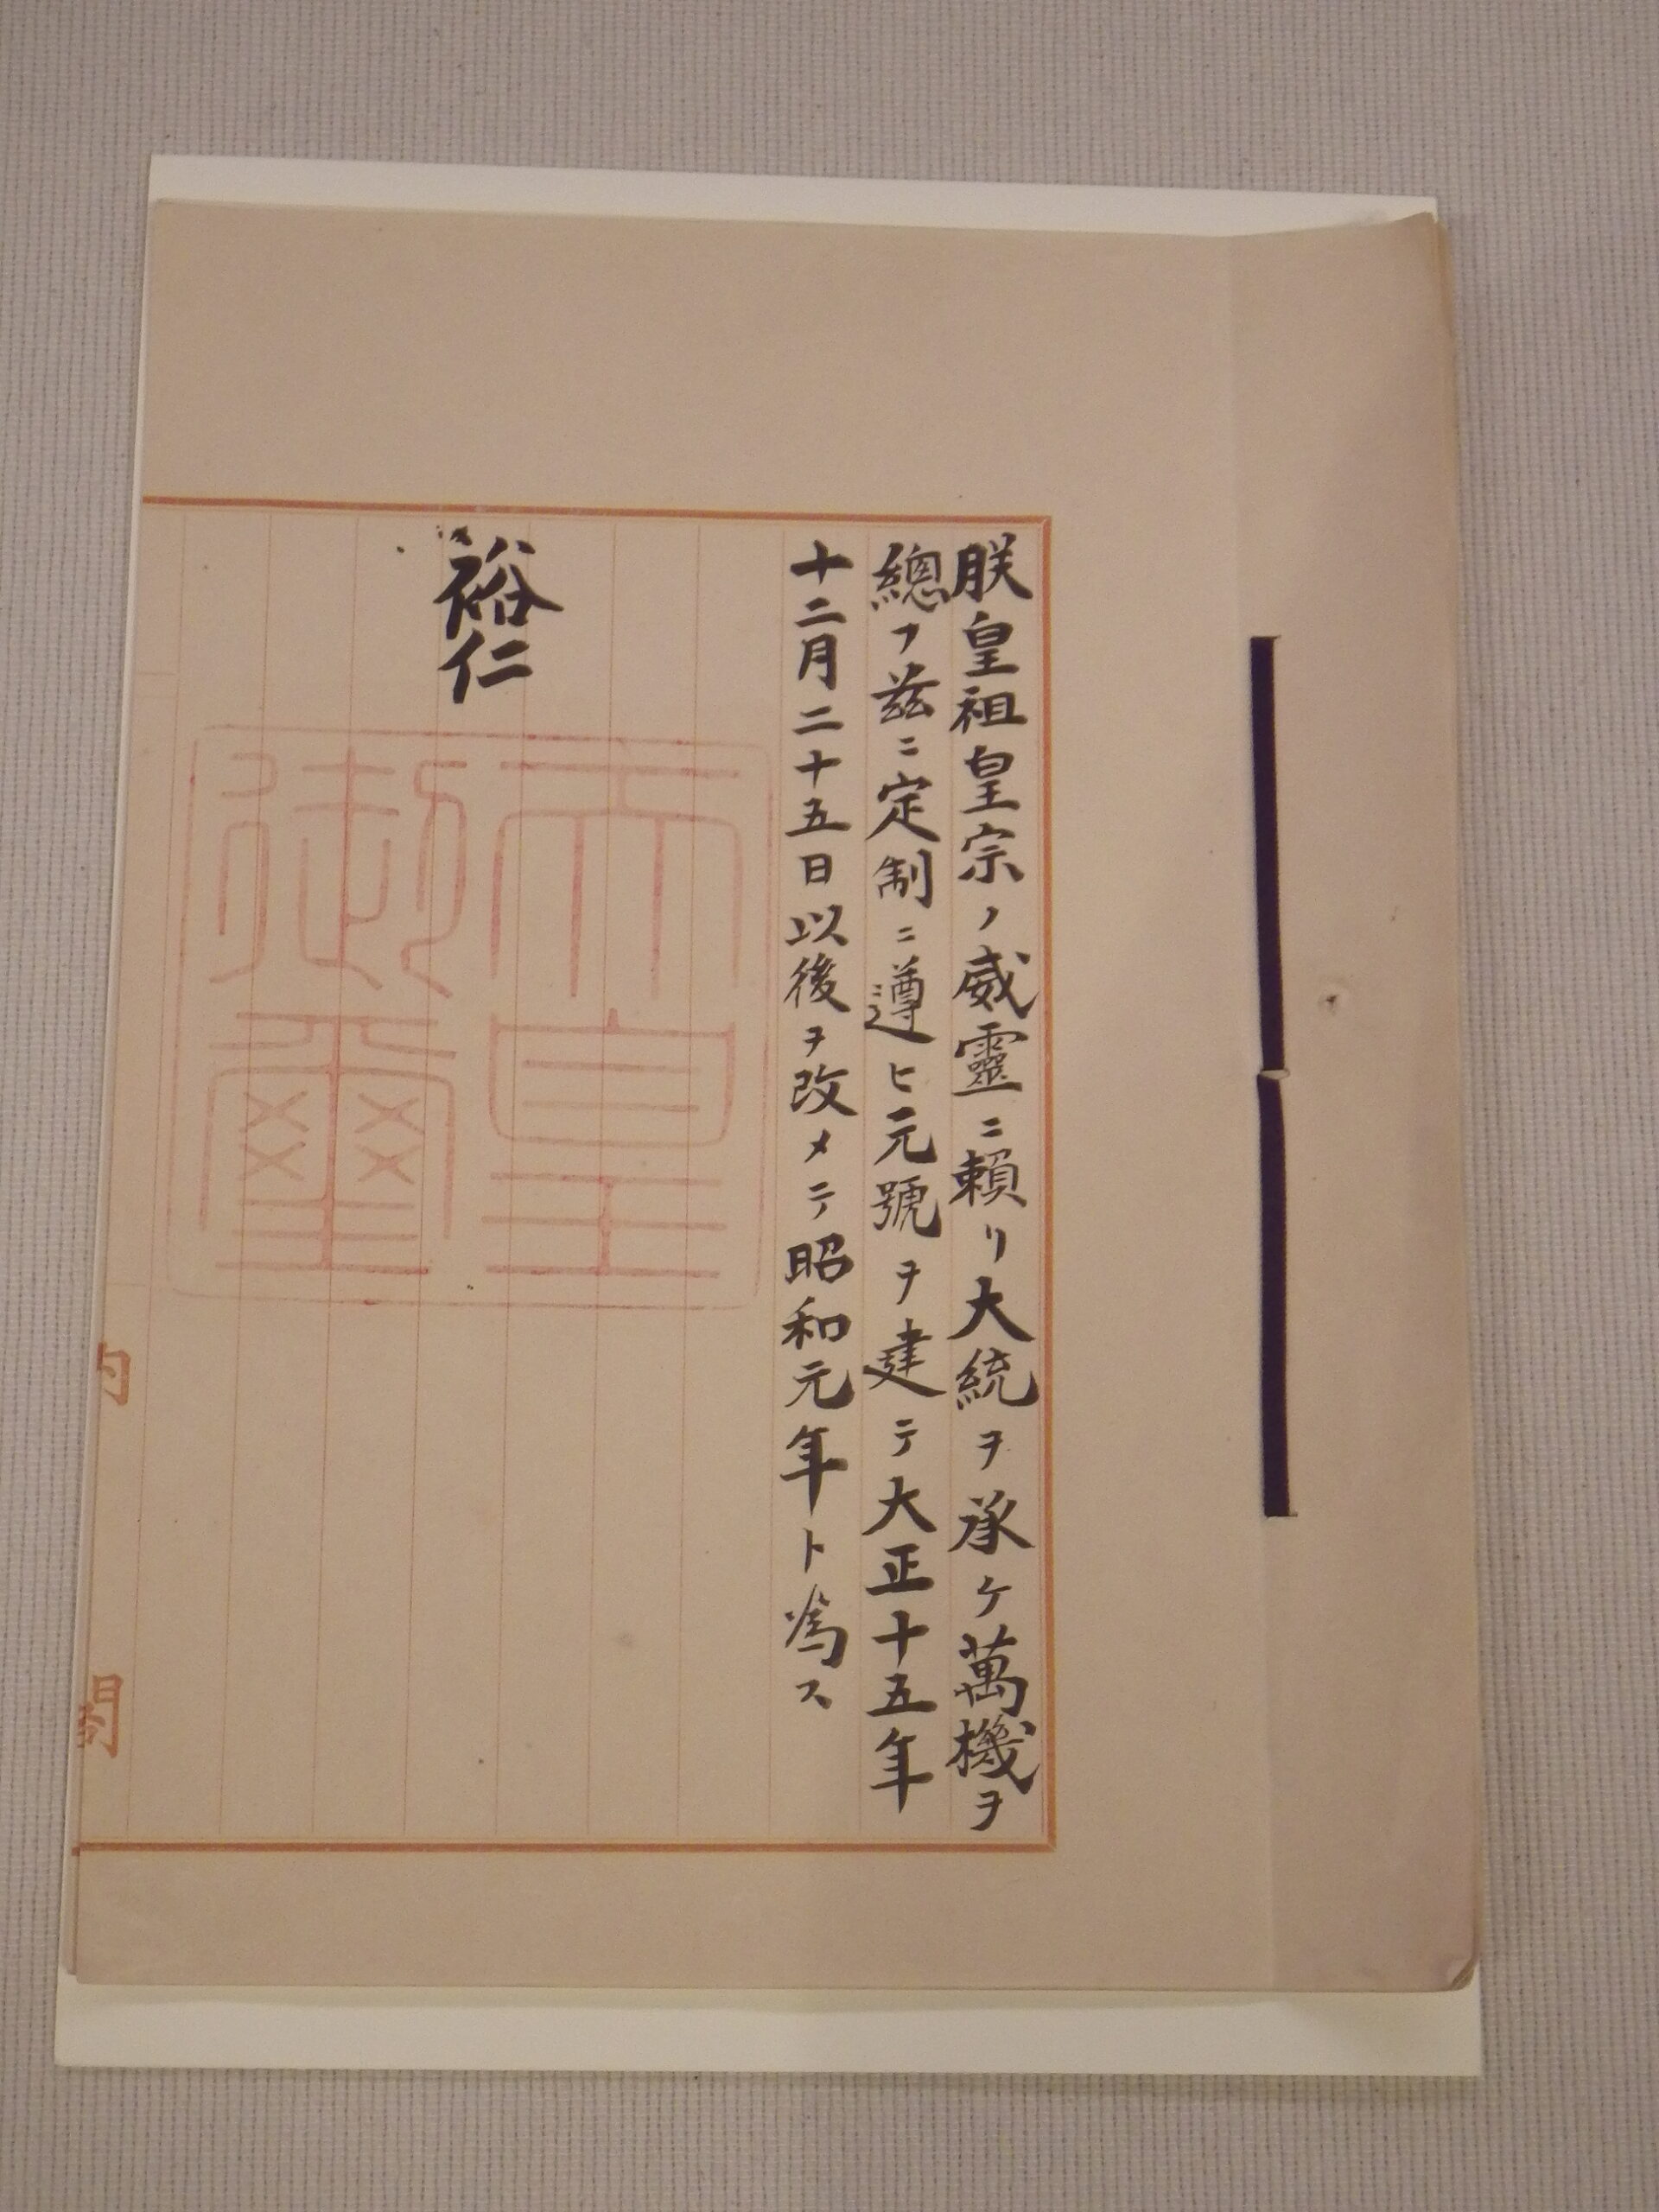 朕皇祖皇宗ノ威靈ニ賴リ大統ヲ承ケ萬機ヲ
總フ茲ニ定制ニ遵ヒ元號ヲ建テ大正十五年
十二月二十五日以後ヲ改メテ昭和元年ト爲ス
裕仁
天皇
御璽
内閣